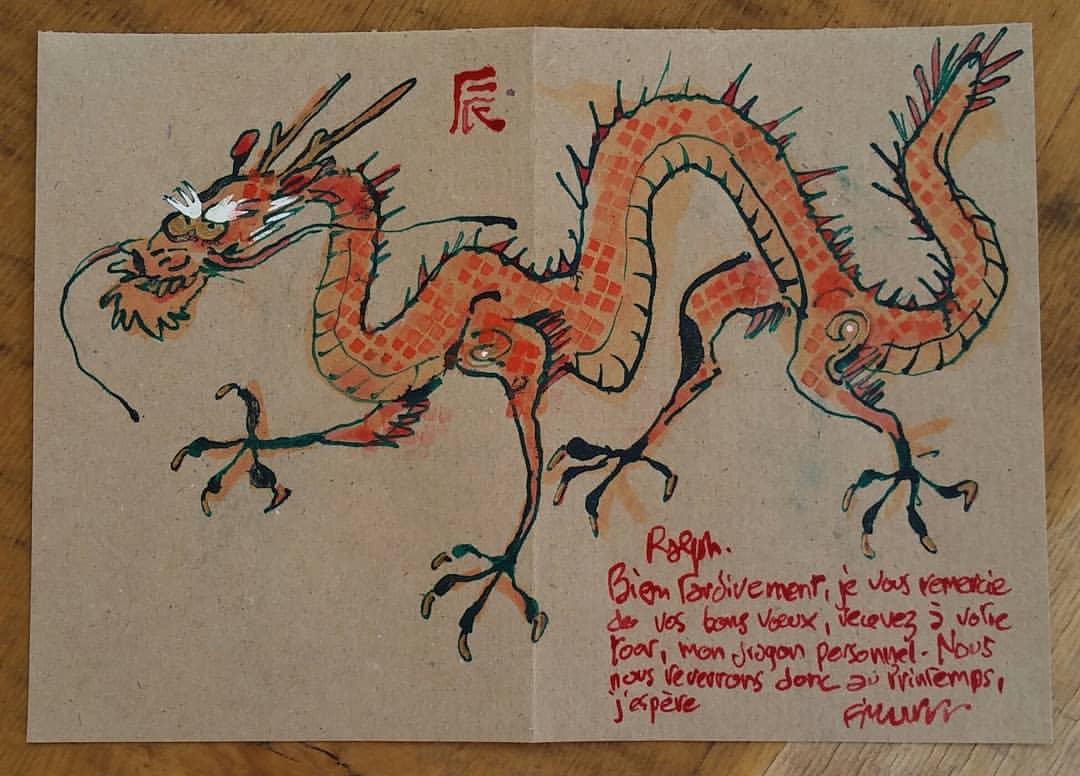 辰
Ralph.
Bien tardivement, je vous remercie
de vos bons vœux, recevez à votre
tour, mon dragon personnel. Nous
nous reverrons donc au Printemps,
j'espère